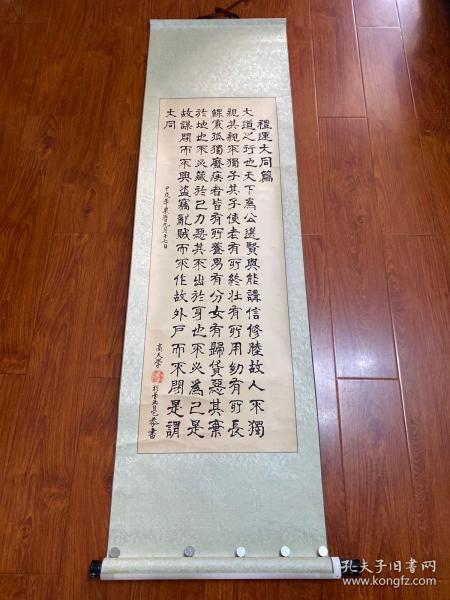 禮運大同篇
大道之行也天下為公選賢與能講信修睦故人不獨
親其親不獨子其子使老有所終壯有所用幼有所長
鰥寡孤獨廢疾者皆有所養男有分女有歸貨惡其棄
於地也不必藏於己力惡其不出於身也不必為己是
故謀閉而不興盜竊亂賊而不作故外戶而不閉是謂
大同
甲戌年農曆九月十七日
高天學
恭書
孔夫子旧书网
kongfz.com